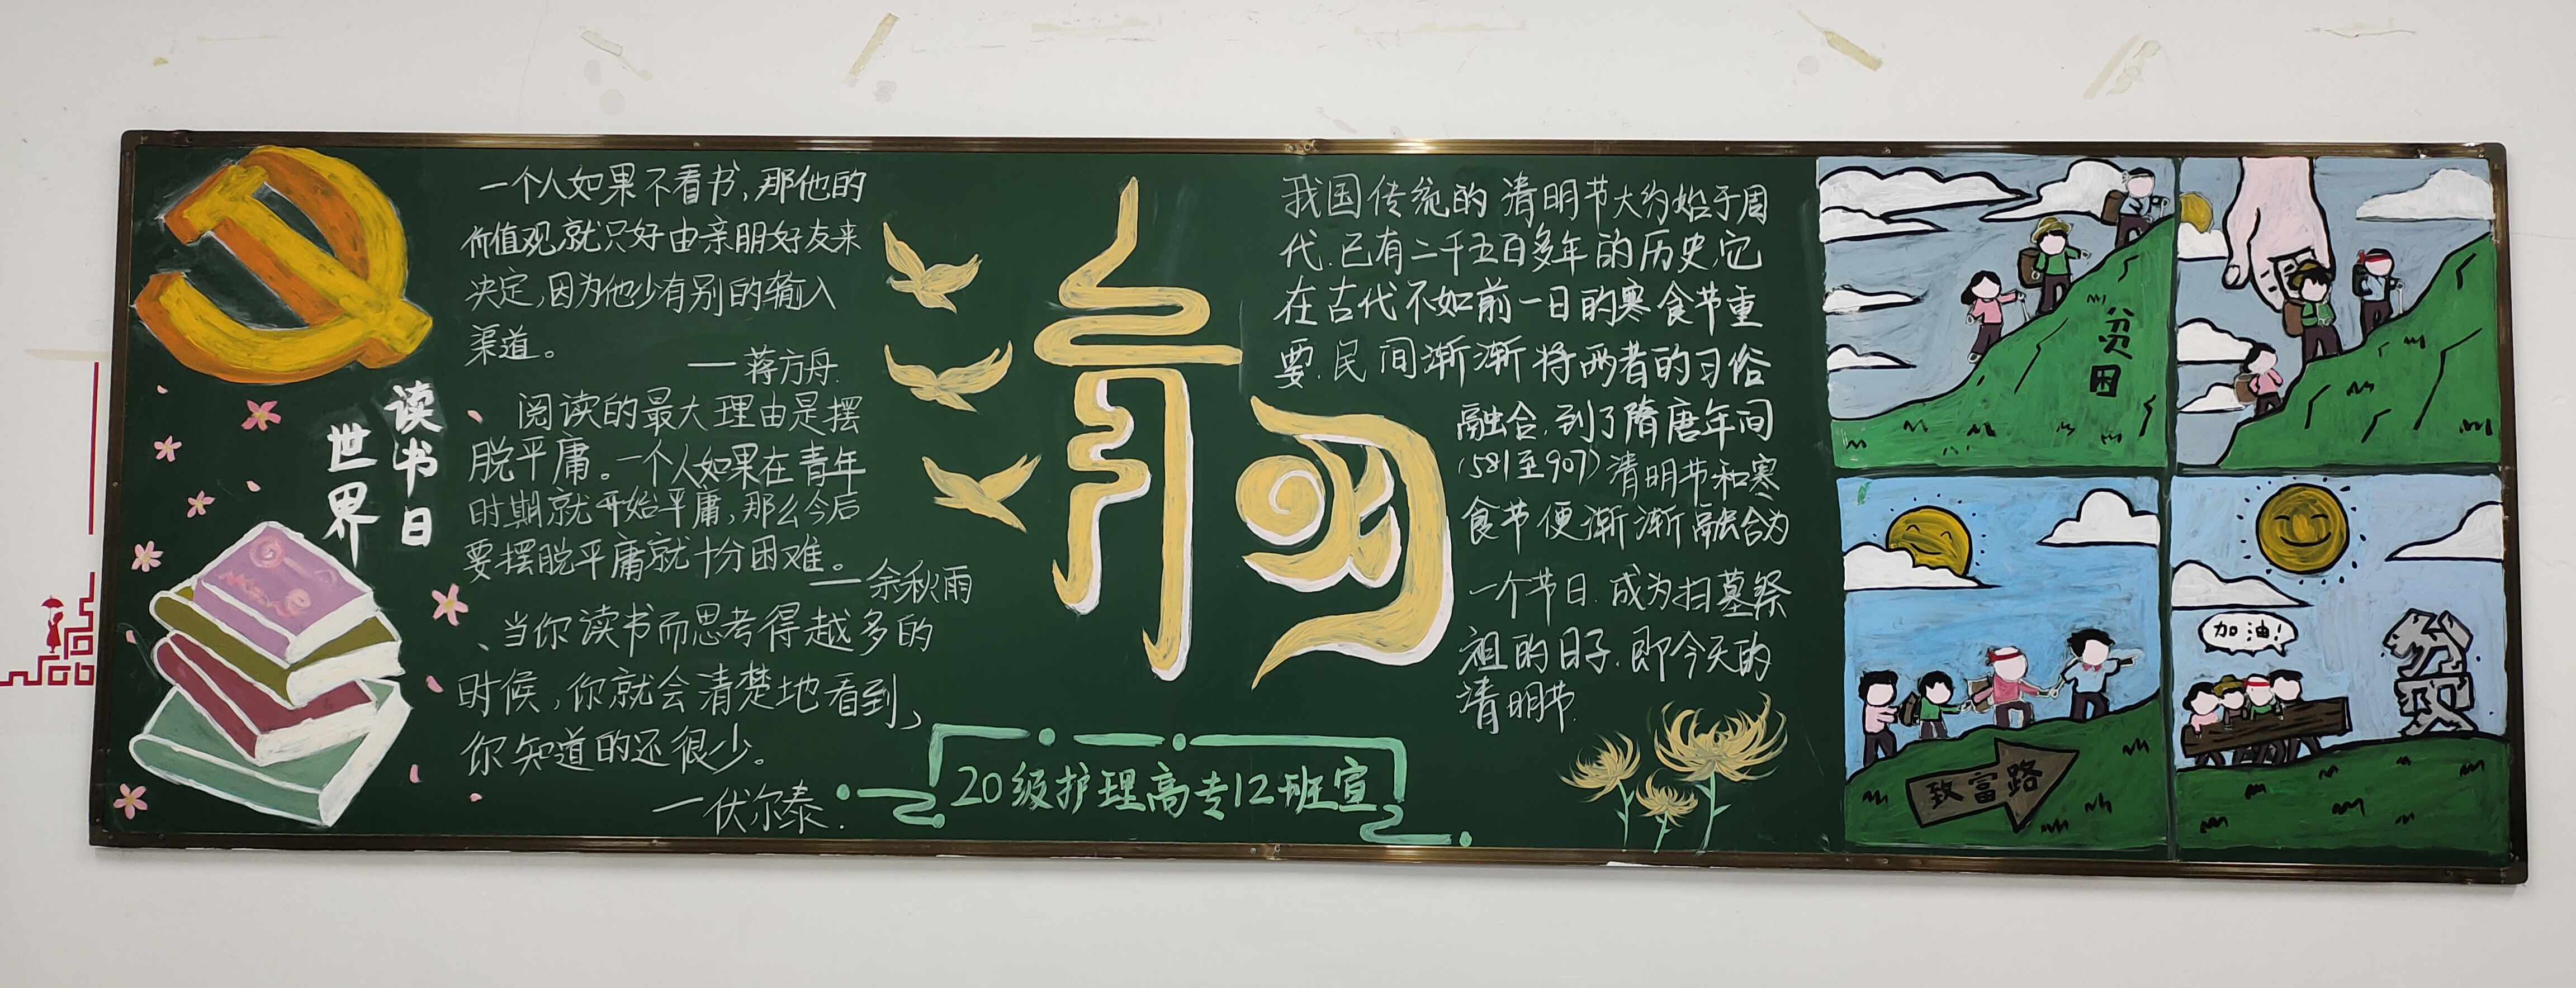 读书日
世界
一个人如果不看书，那他的
价值观就只好由亲朋好友来
决定，因为他少有别的输入
渠道。
——蒋方舟.
阅读的最大理由是摆
脱平庸。一个人如果在青年
时期就开始平庸，那么今后
要摆脱平庸就十分困难。
——余秋雨
、当你读书而思考得越多的
时候，你就会清楚地看到，
你知道的还很少。
——伏尔泰.
清明
20级护理高专12班宣
我国传统的清明节大约始于周
代.已有二千五百多年的历史.它
在古代不如前一日的寒食节重
要.民间渐渐将两者的习俗
融合.到了隋唐年间
(581至907)清明节和寒
食节便渐渐融合为
一个节日.成为扫墓祭
祖的日子.即今天的
清明节.
贫困
致富路
加油!
贫